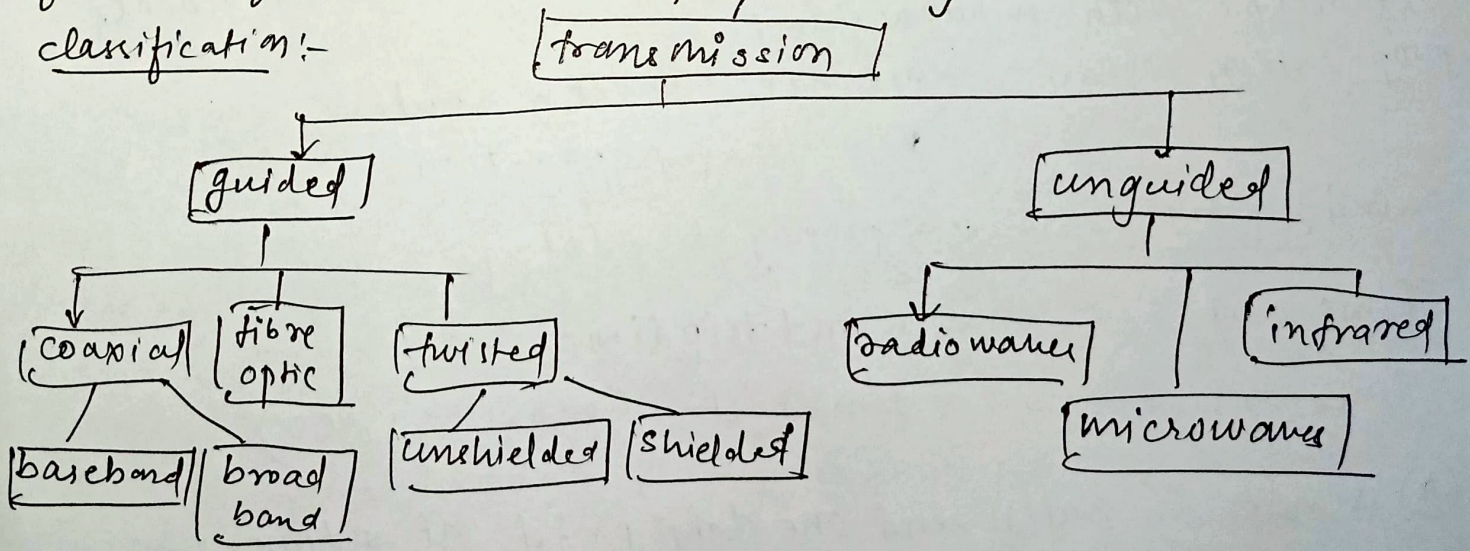 classification:-
transmission
guided
unguided
coaxial
fibre
optic
twisted
radiowaves
infrared
microwaves
baseband
broad
band
unshielded
shielded